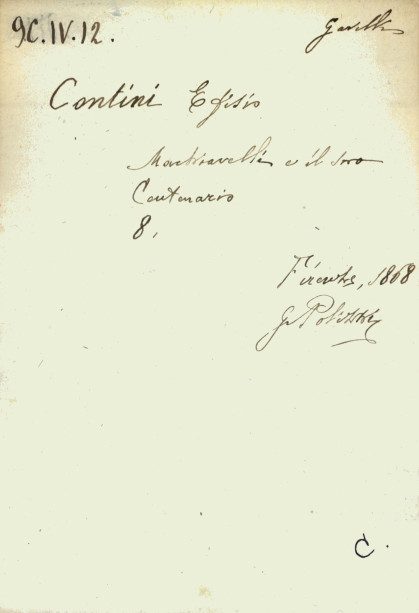 9C.IV.12.
Contini Efisio
Machiavelli e il suo
Centenario
8,
Firenze, 1868
G. Polizzi
C.